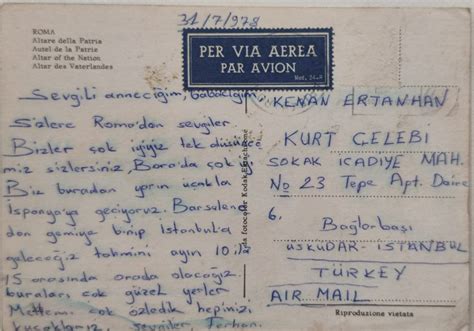 31/7/978
ROMA
Altare della Patria
Autel de la Patrie
Altar of the Nation
Altar des Vaterlandes
PER VIA AEREA
PAR AVION
Sevgili anneciğim, babacığım,
Sizlere Roma'dan sevgiler.
Bizler çok iyiyiz tek düşünce
miz sizlersiniz, Bora'da çok iyi
Biz buradan yarın uçakla
İspanya'ya geçiyoruz. Barselona
dan gemiye binip İstanbul'a
geleceğiz tahmini ayın 10 ila
15 arasında orada olacağız.
buraları çok güzel yerler
çok özledik hepinizi
kucaklarız, sevgiler, Terhan.
KENAN ERTANHAN
KURT ÇELEBİ
SOKAK İCADİYE MAH.
No 23 Tepe Apt. Daire
6.
Bağlarbaşı
ÜSKÜDAR - İSTANBUL
TÜRKEY
AIR MAIL
Riproduzione vietata